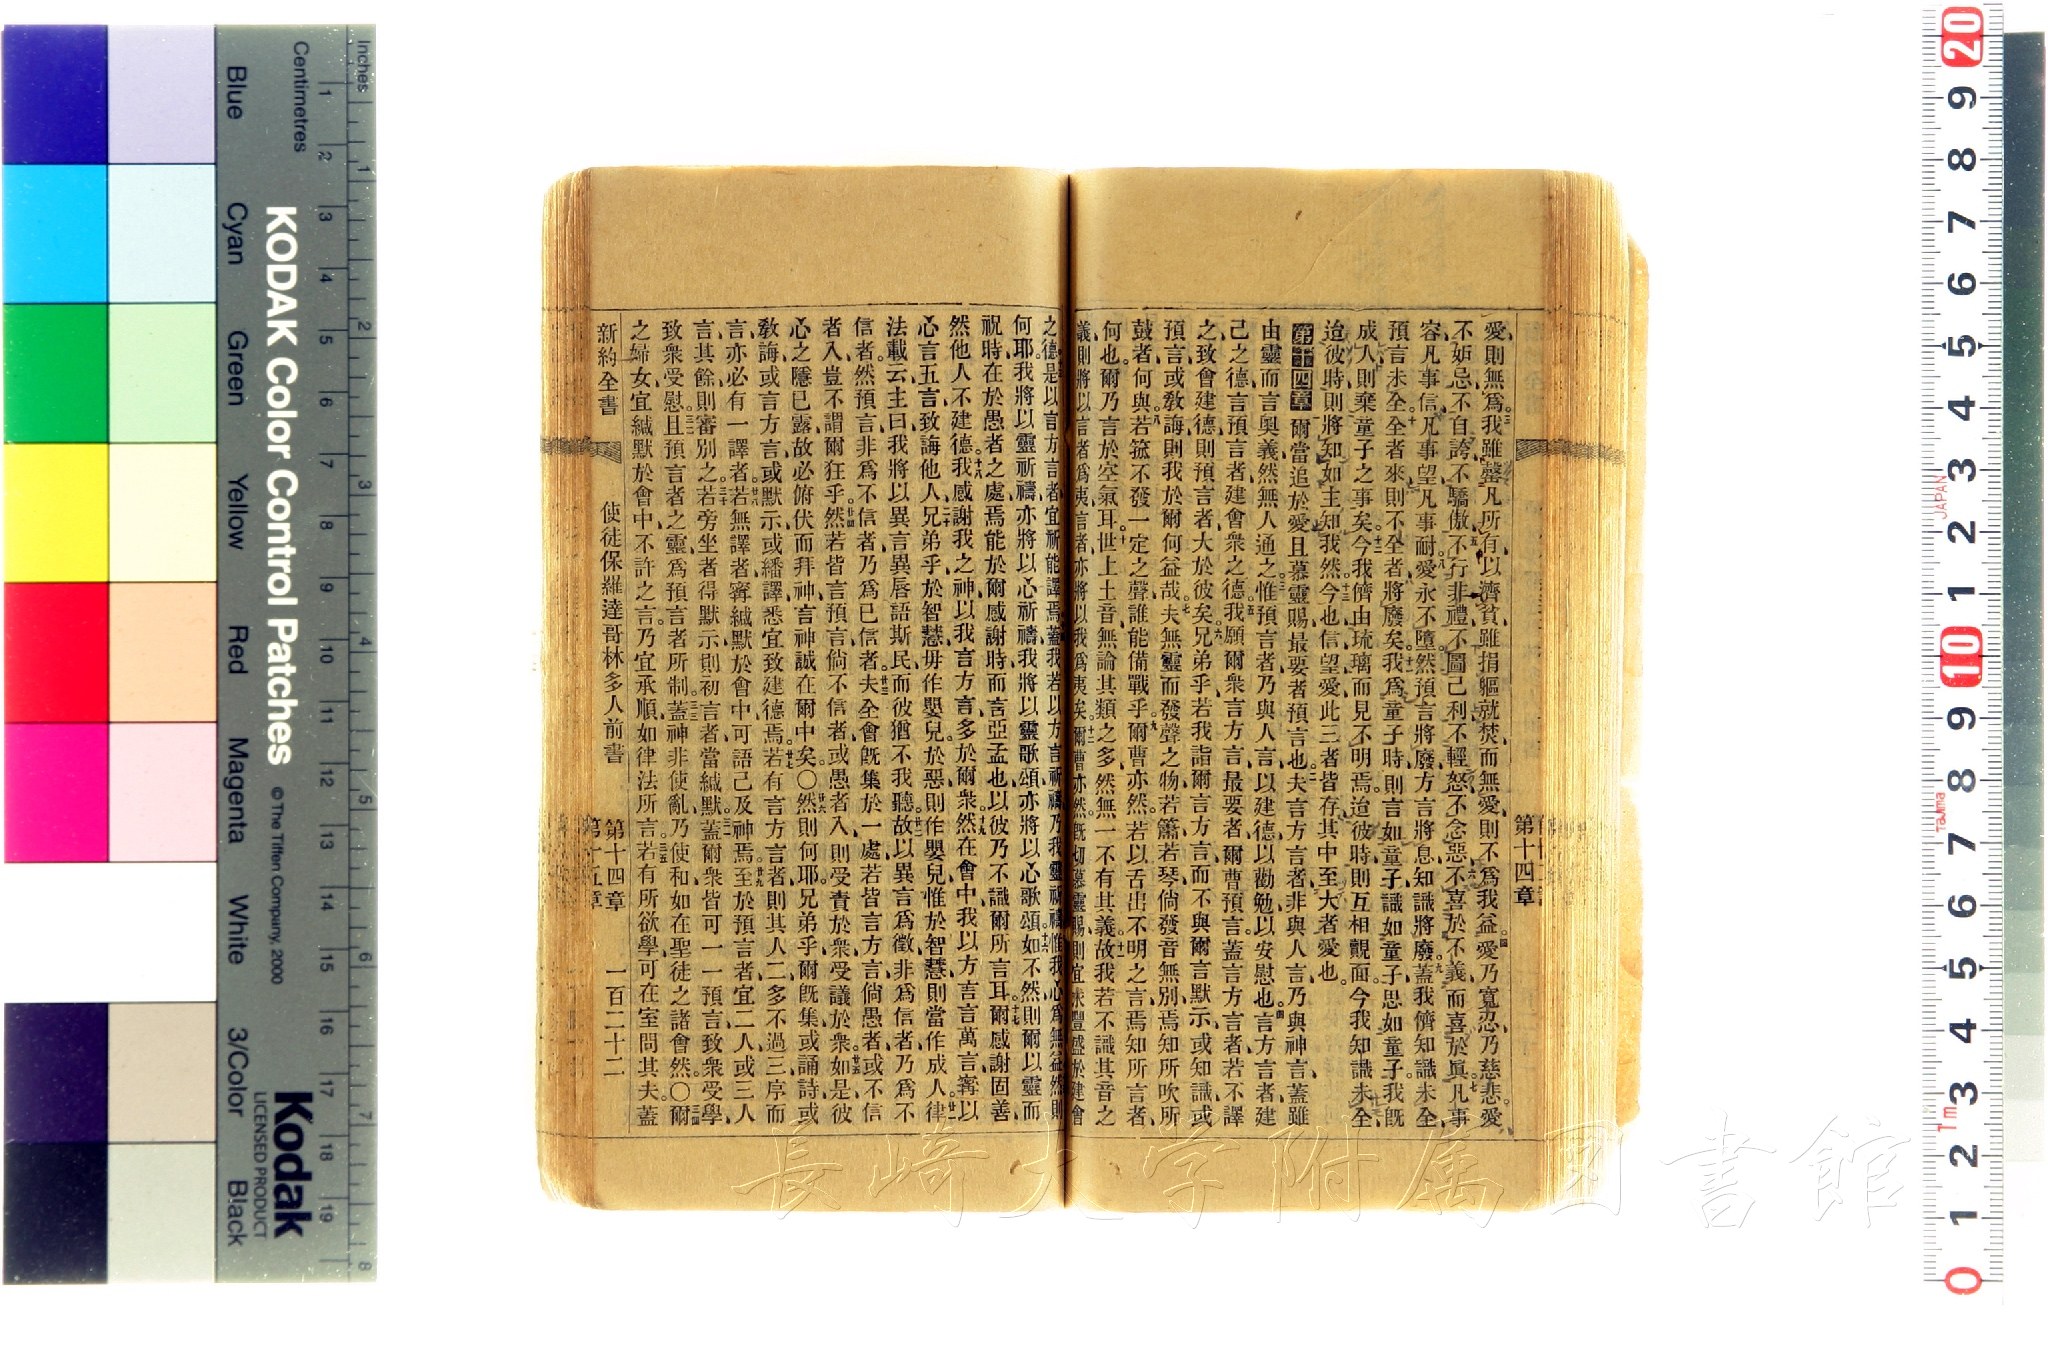 愛則無爲我雖罄凡所有以濟貧雖捐軀就焚而無愛則不爲我益愛乃寬忍乃慈悲愛
不妬忌不自誇不驕傲不行非禮不圖己利不輕怒不念惡不喜於不義而喜於眞凡事
容凡事信凡事望凡事耐愛永不墮然預言將廢方言將息知識將廢蓋我儕知識未全
預言未全全者來則不全者將廢矣我爲童子時則言如童子識如童子思如童子我旣
成人則棄童子之事矣今我儕由琉璃而見不明焉迨彼時則互相覿面今我知識未全
迨彼時則將知如主知我然今也信望愛此三者皆存其中至大者愛也
第十四章 爾當追於愛且慕靈賜最要者預言也夫言方言者非與人言乃與神言蓋雖
由靈而言奧義然無人通之惟預言者乃與人言以建德以勸勉以安慰也言方言者建
己之德言預言者建會衆之德我願爾衆言方言最要者爾曹預言蓋言方言者若不譯
之致會建德則預言者大於彼矣兄弟乎若我詣爾言方言而不與爾言默示或知識或
預言或敎誨則我於爾何益哉夫無靈而發聲之物若簫若琴倘發音無別焉知所吹所
鼓者何與若箛不發一定之聲誰能備戰乎爾曹亦然若以舌出不明之言焉知所言者
何也爾乃言於空氣耳世上土音無論其類之多然無一不有其義故我若不識其音之
義則將以言者爲夷言者亦將以我爲夷矣爾曹亦然旣切慕靈賜則宜求豐盛於建會
第十四章
之德是以言方言者宜祈能譯焉蓋我若以方言祈禱乃我靈祈禱惟我心爲無益然則
何耶我將以靈祈禱亦將以心祈禱我將以靈歌頌亦將以心歌頌如不然則爾以靈而
祝時在於愚者之處焉能於爾感謝時而言亞孟也以彼乃不識爾所言耳爾感謝固善
然他人不建德我感謝我之神以我言方言多於爾衆然在會中我以方言言萬言寗以
心言五言致誨他人兄弟乎於智慧毋作嬰兒於惡則作嬰兒惟於智慧則當作成人律
法載云主曰我將以異言異唇語斯民而彼猶不我聽故以異言爲徵非爲信者乃爲不
信者然預言非爲不信者乃爲已信者夫全會旣集於一處若皆言方言倘愚者或不信
者入豈不謂爾狂乎然若皆言預言倘不信者或愚者入則受責於衆受議於衆如是彼
心之隱已露故必俯伏而拜神言神誠在爾中矣〇然則何耶兄弟乎爾旣集或誦詩或
敎誨或言方言或默示或繙譯悉宜致建德焉若有言方言者則其人二多不過三序而
言亦必有一譯者若無譯者寗緘默於會中可語己及神焉至於預言者宜二人或三人
言其餘則審別之若旁坐者得默示則初言者當緘默蓋爾衆皆可一一預言致衆受學
致衆受慰且預言者之靈爲預言者所制蓋神非使亂乃使和如在聖徒之諸會然〇爾
之婦女宜緘默於會中不許之言乃宜承順如律法所言若有所欲學可在室問其夫蓋
新約全書 使徒保羅達哥林多人前書 第十四章 一百二十二
第十五章
長崎大学附属図書館
KODAK Color Control Patches
© The Tiffen Company, 2000
Kodak
LICENSED PRODUCT
Inches 1 2 3 4 5 6 7 8
Centimetres 1 2 3 4 5 6 7 8 9 10 11 12 13 14 15 16 17 18 19
Blue Cyan Green Yellow Red Magenta White 3/Color Black
20 9 8 7 6 5 4 3 2 1 10 9 8 7 6 5 4 3 2 1 0
JAPAN
Tajima
Tm